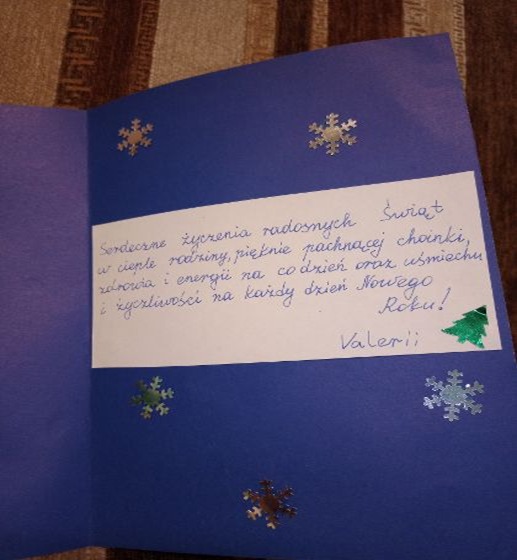 Serdeczne życzenia radosnych Świąt
w cieple rodziny, pięknie pachnącej choinki,
zdrowia i energii na codzień oraz uśmiechu
i życzliwości na każdy dzień Nowego
Roku!
Valerii